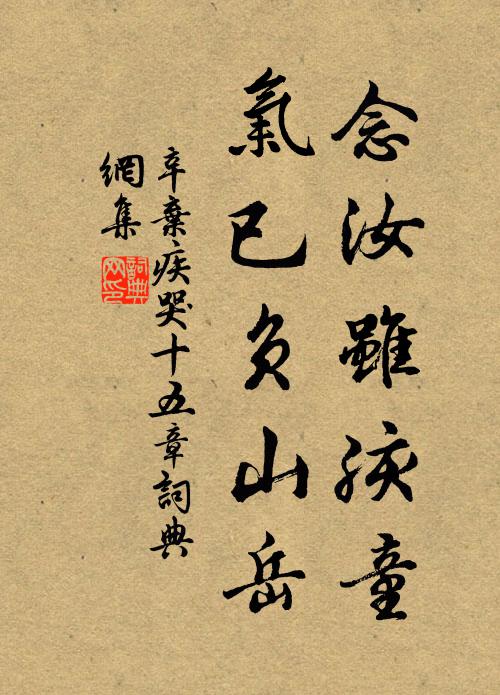 念汝雖孩童
氣已負山岳
辛棄疾哭十五章詞典
網集
詞典
网印